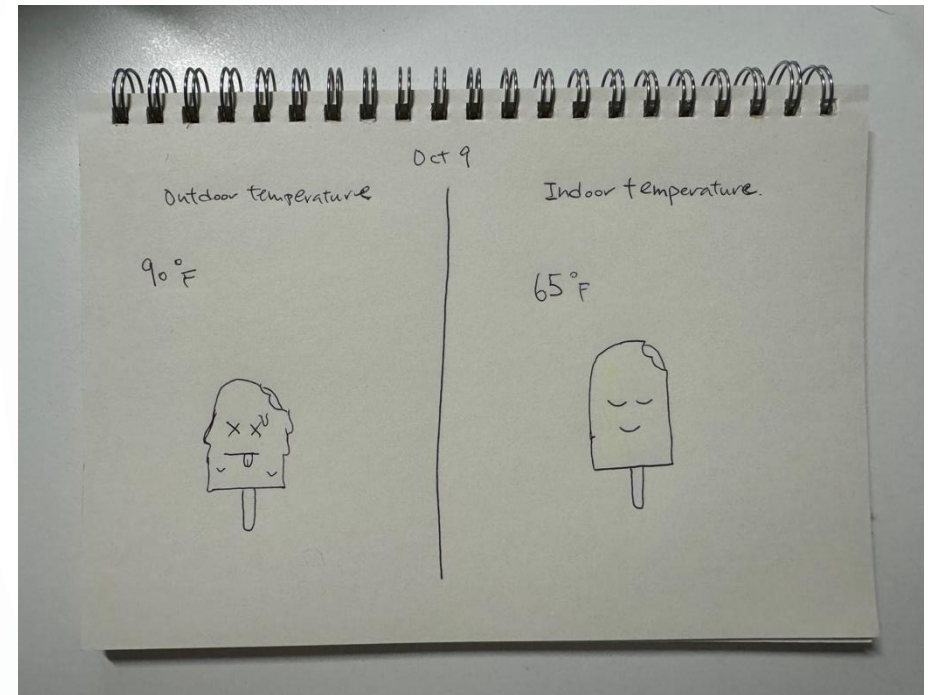 Oct 9
Outdoor temperature
90°F
Indoor temperature.
65°F